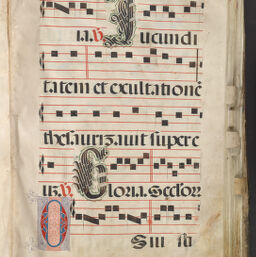 ia. ℟. Jucundi
tatem et exultationē
thesaurizavit super e
um. ℣. Gloria. Secſorr
O
Sui ſu